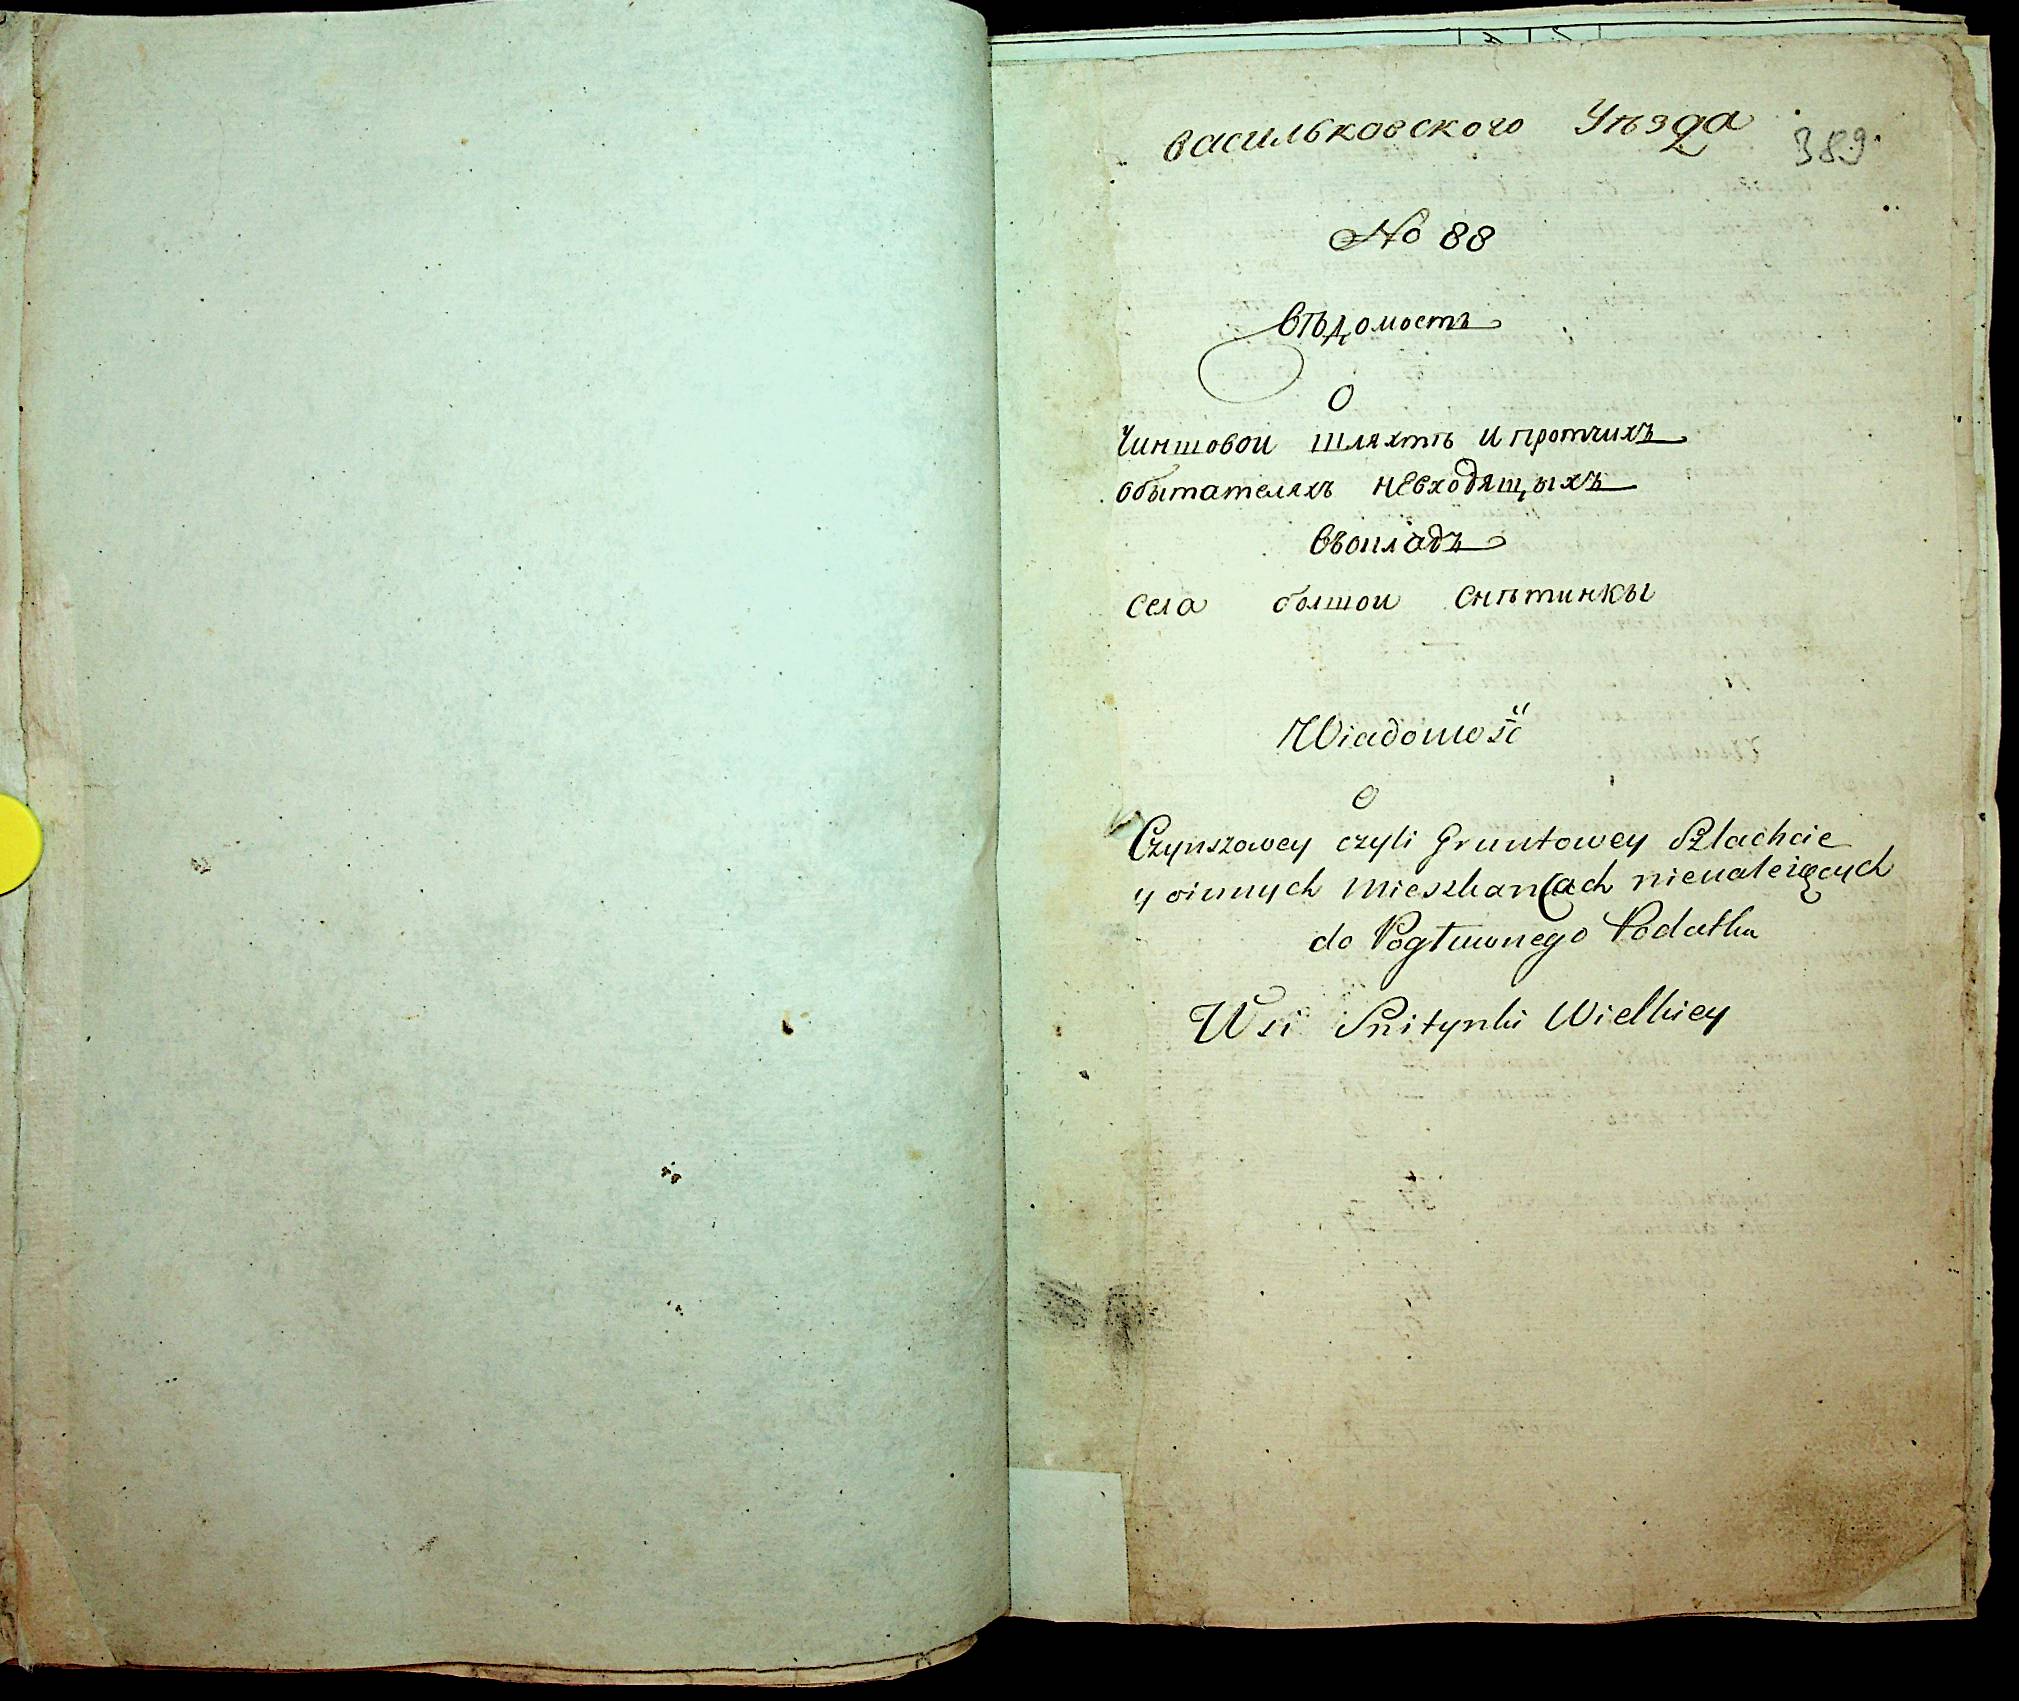 васильковского Уѣзда
389.
No 88
вѣдомость
О
Чиншовои шляхтѣ и протчихъ
обытателяхъ невходящыхъ
въокладъ
села болшои Снѣтинкы
Wiadomość
O
Czynszowey czyli Gruntowey Szlachcie
y oinnych Mieszkancach nienależących
do Pogłuwnego Podatku
Wsi Snitynki Wielkiey